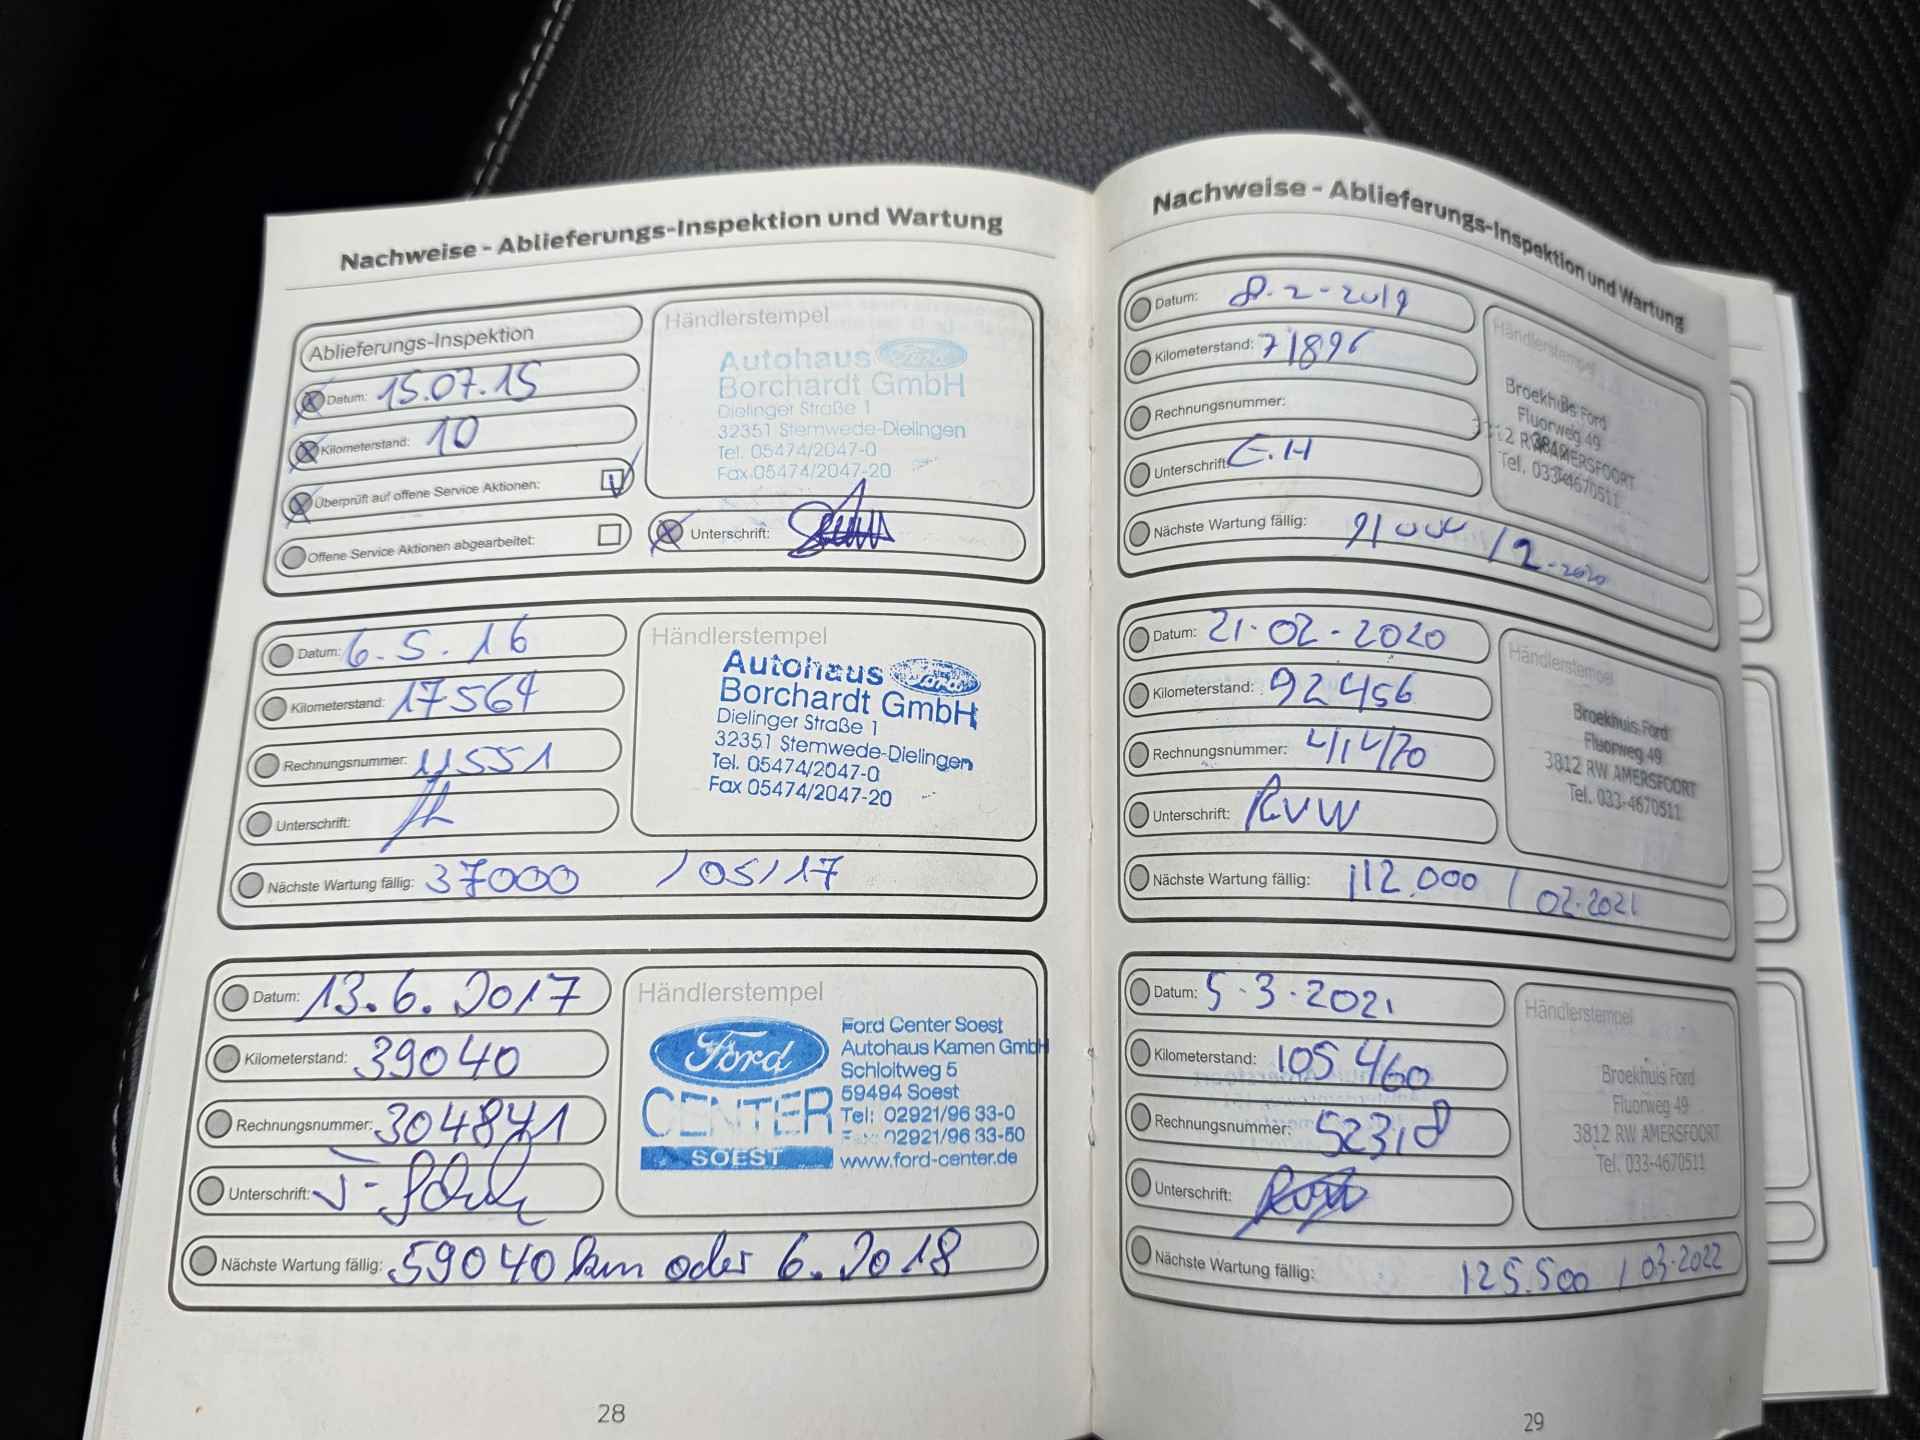 Nachweise - Ablieferungs-Inspektion und Wartung
Ablieferungs-Inspektion
Datum: 15.07.15
Kilometerstand: 10
Überprüft auf offene Service Aktionen:
Offene Service Aktionen abgearbeitet:
Händlerstempel
Autohaus Ford
Borchardt GmbH
Dielinger Straße 1
32351 Stemwede-Dielingen
Tel. 05474/2047-0
Fax 05474/2047-20
Unterschrift:
Datum: 6.5.16
Kilometerstand: 17564
Rechnungsnummer: 11551
Unterschrift:
Nächste Wartung fällig: 37000 / 05/17
Händlerstempel
Autohaus Ford
Borchardt GmbH
Dielinger Straße 1
32351 Stemwede-Dielingen
Tel. 05474/2047-0
Fax 05474/2047-20
Datum: 13.6.2017
Kilometerstand: 39040
Rechnungsnummer: 304841
Unterschrift:
Nächste Wartung fällig: 59040 km oder 6.2018
Händlerstempel
Ford
CENTER
SOEST
Ford Center Soest
Autohaus Kamen GmbH
Schloitweg 5
59494 Soest
Tel: 02921/96 33-0
Fax: 02921/96 33-50
www.ford-center.de
28
Nachweise - Ablieferungs-Inspektion und Wartung
Datum: 8-2-2019
Kilometerstand: 71896
Rechnungsnummer:
Unterschrift: E.H
Nächste Wartung fällig: 91000 / 2-2020
Händlerstempel
Broekhuis Ford
Fluorweg 49
3812 RW AMERSFOORT
Tel. 033-4670511
Datum: 21-02-2020
Kilometerstand: 92456
Rechnungsnummer:
Unterschrift: RVW
Nächste Wartung fällig: 112.000 / 02-2021
Händlerstempel
Broekhuis Ford
Fluorweg 49
3812 RW AMERSFOORT
Tel. 033-4670511
Datum: 5-3-2021
Kilometerstand: 105460
Rechnungsnummer:
Unterschrift:
Nächste Wartung fällig: 125.500 / 03-2022
Händlerstempel
Broekhuis Ford
Fluorweg 49
3812 RW AMERSFOORT
Tel. 033-4670511
29